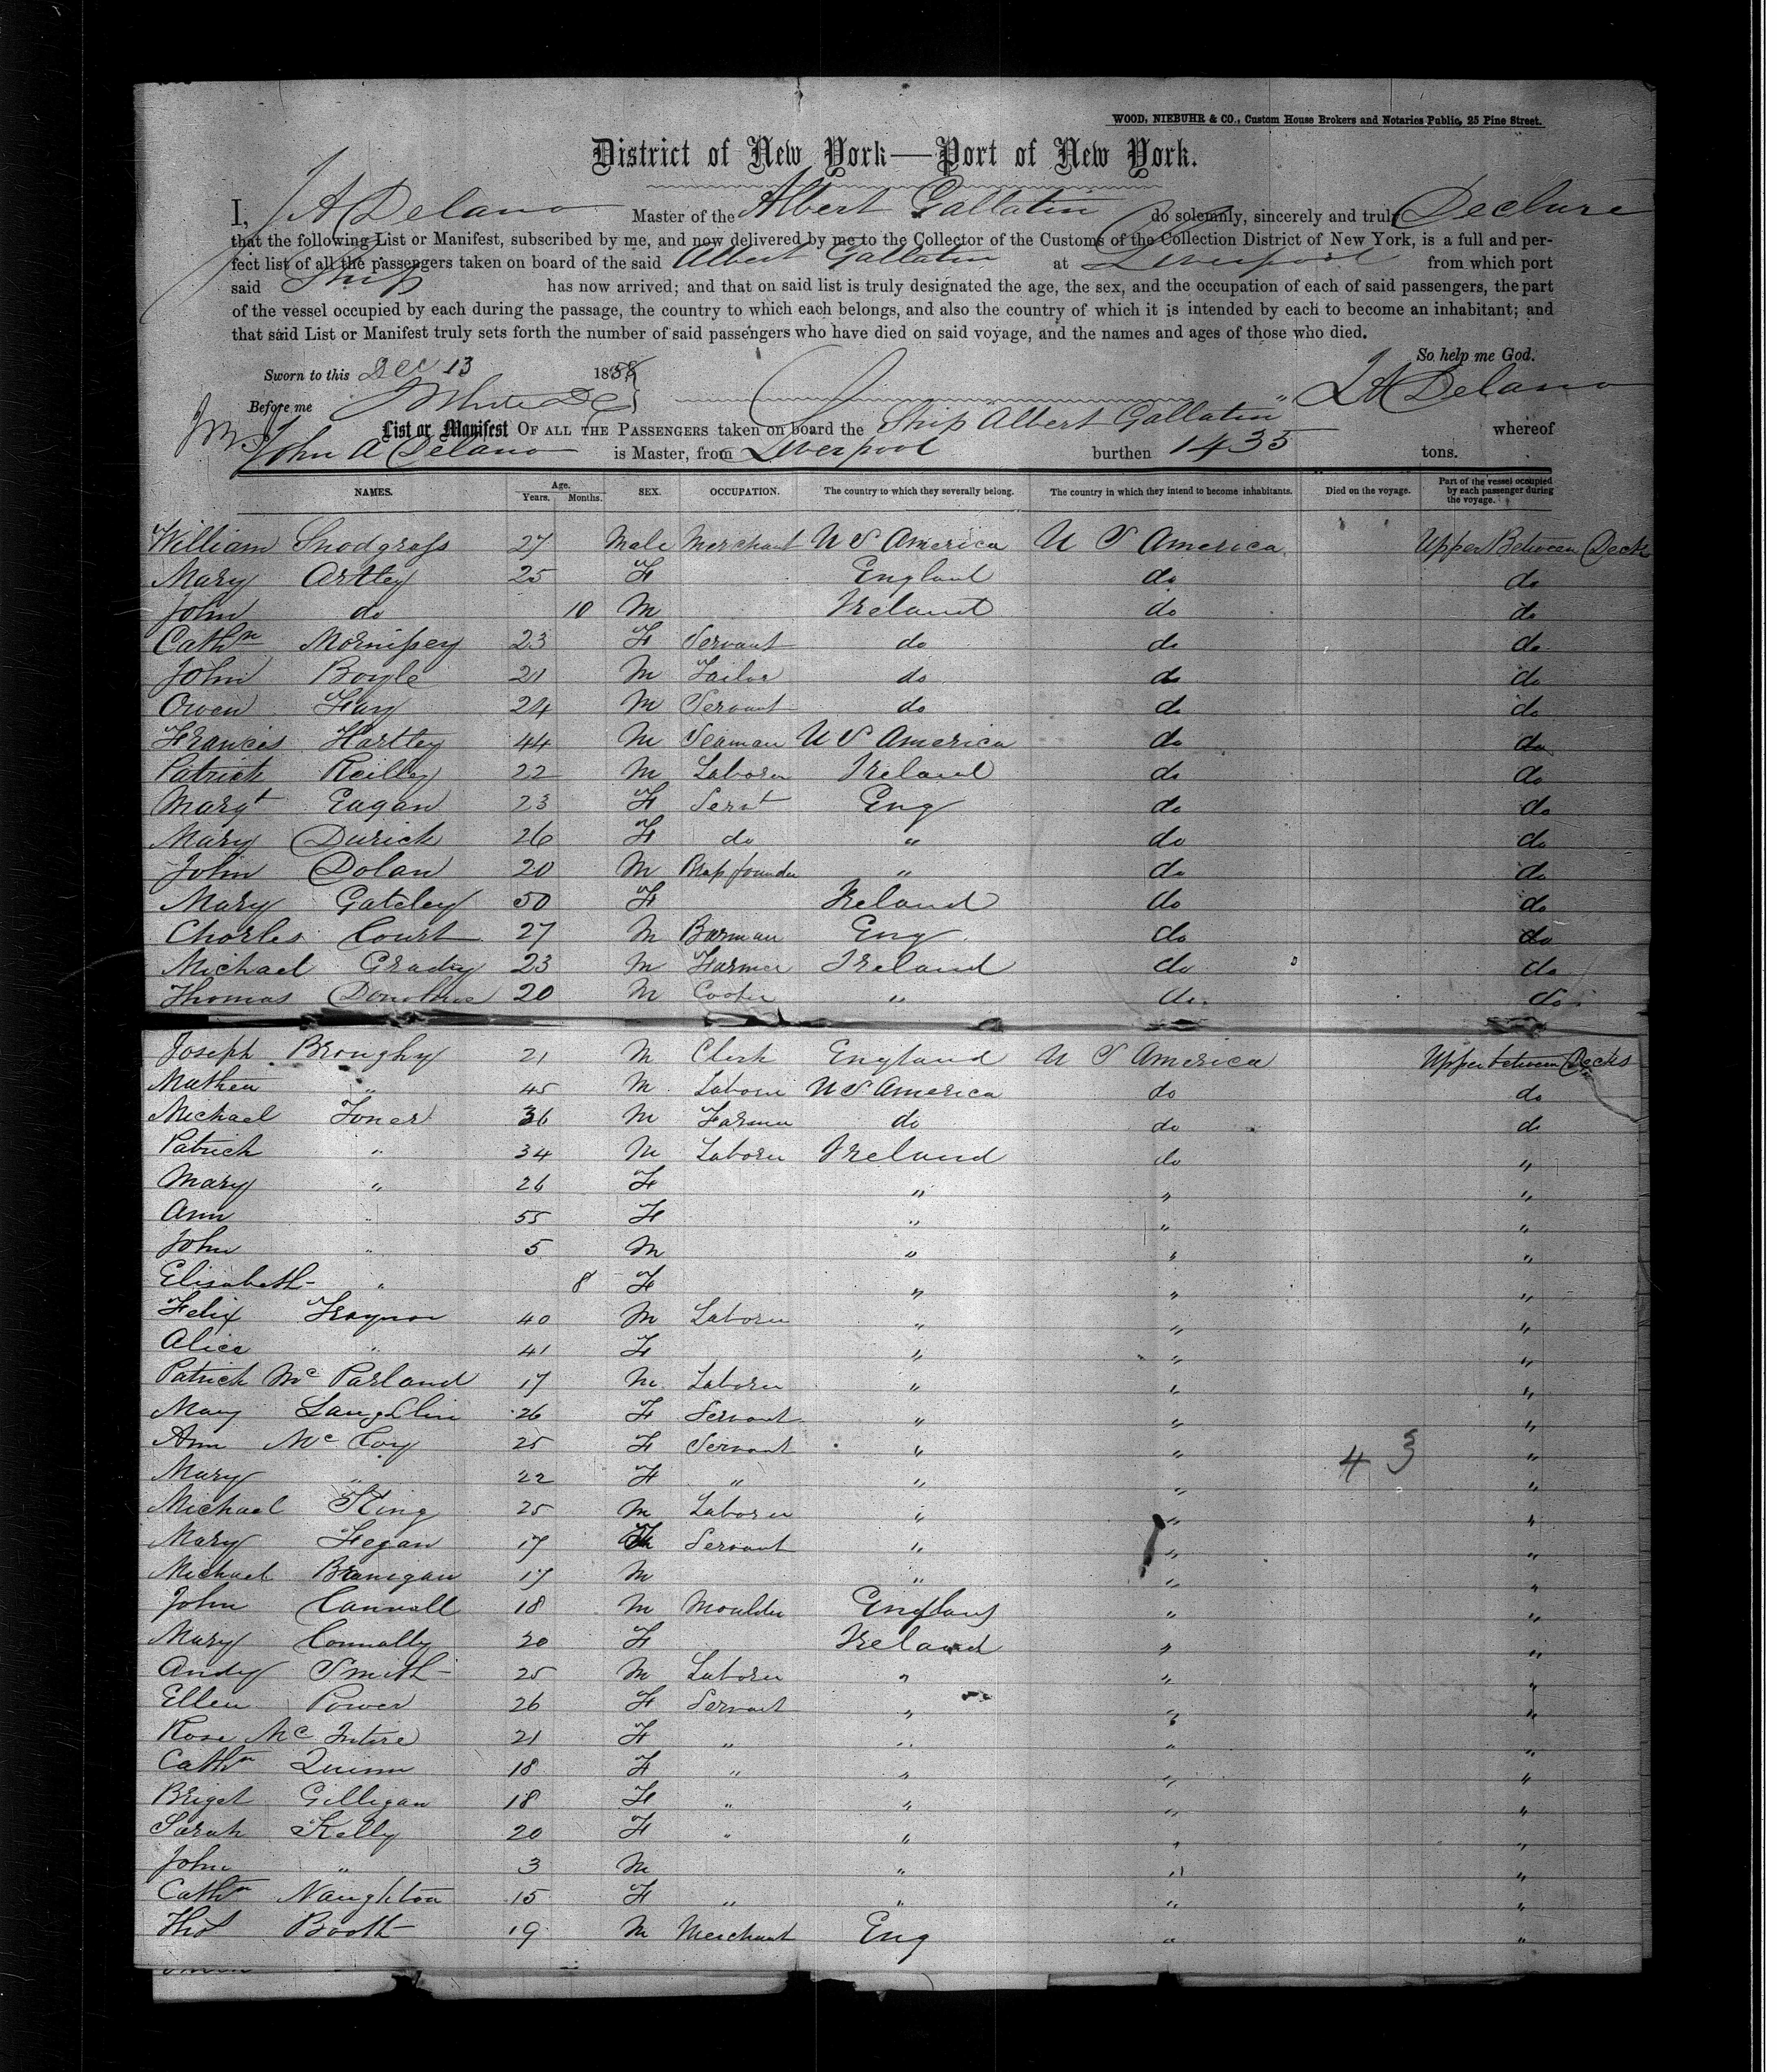 WOOD, NIEBUHR & CO., Custom House Brokers and Notaries Public, 25 Pine Street.
District of New York—Port of New York.
I, J A Delano Master of the Albert Gallatin do solemnly, sincerely and truly Declare
that the following List or Manifest, subscribed by me, and now delivered by me to the Collector of the Customs of the Collection District of New York, is a full and per-
fect list of all the passengers taken on board of the said Albert Gallatin at Liverpool from which port
said Ship has now arrived; and that on said list is truly designated the age, the sex, and the occupation of each of said passengers, the part
of the vessel occupied by each during the passage, the country to which each belongs, and also the country of which it is intended by each to become an inhabitant; and
that said List or Manifest truly sets forth the number of said passengers who have died on said voyage, and the names and ages of those who died.
So help me God.
Sworn to this Dec 13 1858
J A Delano
Before me
List or Manifest OF ALL THE PASSENGERS taken on board the Ship "Albert Gallatin" whereof
John A Delano is Master, from Liverpool burthen 1435 tons.
NAMES. Age. Years. Months. SEX. OCCUPATION. The country to which they severally belong. The country in which they intend to become inhabitants. Died on the voyage. Part of the vessel occupied by each passenger during the voyage.
William Snodgrass 27 Male Merchant U S America U S America Upper Between Decks
Mary Artley 25 F England do do
John do 10 M Ireland do do
Cathn Morrissey 23 F Servant do do do
John Boyle 21 M Tailor do do do
Owen Fay 24 M Servant do do do
Francis Hartley 44 M Seaman U S America do do
Patrick Reilley 22 M Laborer Ireland do do
Margt Eagan 23 F Servt Eng do do
Mary Durick 26 F do " do do
John Dolan 20 M Brass founder " do do
Mary Gateley 50 F Ireland do do
Charles Court 27 M Barman Eng do do
Michael Grady 23 M Farmer Ireland do do
Thomas Donohue 20 M Cooper " do do
Joseph Broughy 21 M Clerk England U S America Upper between Decks
Mathew " 45 M Laborer U S America do do
Michael Joner 36 M Farmer do do do
Patrick " 34 M Laborer Ireland do "
Mary " 26 F " " "
Ann " 55 F " " "
John " 5 M " " "
Elisabeth " 8 F " " "
Felix Traynor 40 M Laborer " " "
Alice " 41 F " " "
Patrick Mc Parland 17 M Laborer " " "
Mary Laughlin 26 F Servant " " "
Ann Mc Coy 25 F Servant " " "
43
Mary " 22 F " " " "
Michael King 25 M Laborer " " "
Mary Fegan 17 F Servant " " "
Michael Branigan 17 M " " "
John Cannell 18 M Moulder England " "
Mary Connolly 20 F Ireland " "
Andy Smith 25 M Laborer " " "
Ellen Power 26 F Servant " " "
Rose Mc Intire 21 F " " " "
Cathn Quinn 18 F " " " "
Briget Gilligan 18 F " " " "
Sarah Kelly 20 F " " " "
John " 3 M " " "
Cathn Naughton 15 F " " " "
Thos Booth 19 M Merchant Eng " "